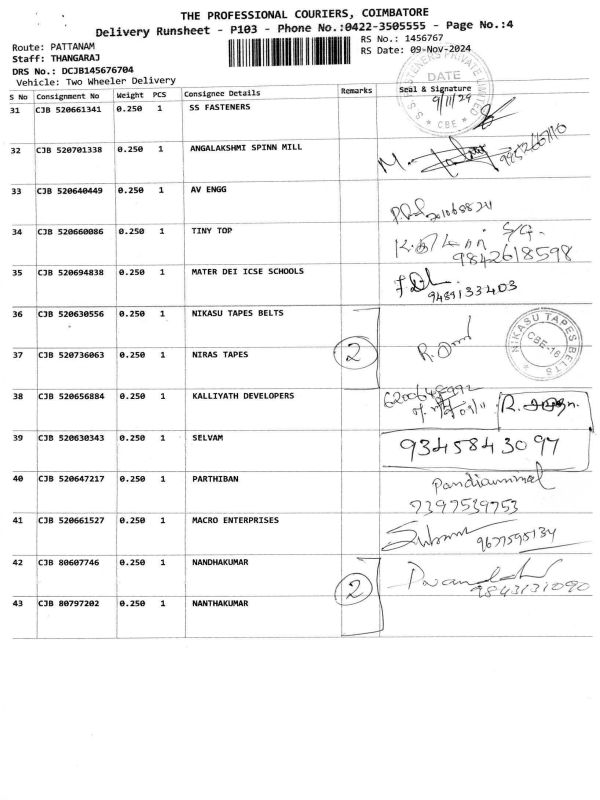 THE PROFESSIONAL COURIERS, COIMBATORE
Delivery Runsheet - P103 - Phone No.:0422-3505555 - Page No.:4
Route: PATTANAM RS No.: 1456767
Staff: THANGARAJ RS Date: 09-Nov-2024
DRS No.: DCJB145676704
Vehicle: Two Wheeler Delivery
S No Consignment No Weight PCS Consignee Details Remarks Seal & Signature
DATE
CBE
31 CJB 520661341 0.250 1 SS FASTENERS
32 CJB 520701338 0.250 1 ANGALAKSHMI SPINN MILL
33 CJB 520640449 0.250 1 AV ENGG
34 CJB 520660086 0.250 1 TINY TOP
9842618598
35 CJB 520694838 0.250 1 MATER DEI ICSE SCHOOLS
9489133403
36 CJB 520630556 0.250 1 NIKASU TAPES BELTS
NIKASU TAPES BELTS
CBE-16
2
37 CJB 520736063 0.250 1 NIRAS TAPES
38 CJB 520656884 0.250 1 KALLIYATH DEVELOPERS
39 CJB 520630343 0.250 1 SELVAM
9345843097
40 CJB 520647217 0.250 1 PARTHIBAN
Pandiammal
7397539753
41 CJB 520661527 0.250 1 MACRO ENTERPRISES
9677595134
42 CJB 80607746 0.250 1 NANDHAKUMAR
2
9843131090
43 CJB 80797202 0.250 1 NANTHAKUMAR